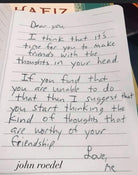 HAFIZ
Dear you,
I think that it's
time for you to make
friends with the
thoughts in your head.
If you find that
you are unable to do
that then I suggest that
you start thinking the
kind of thoughts that
are worthy of your
friendship
Love,
me
john roedel